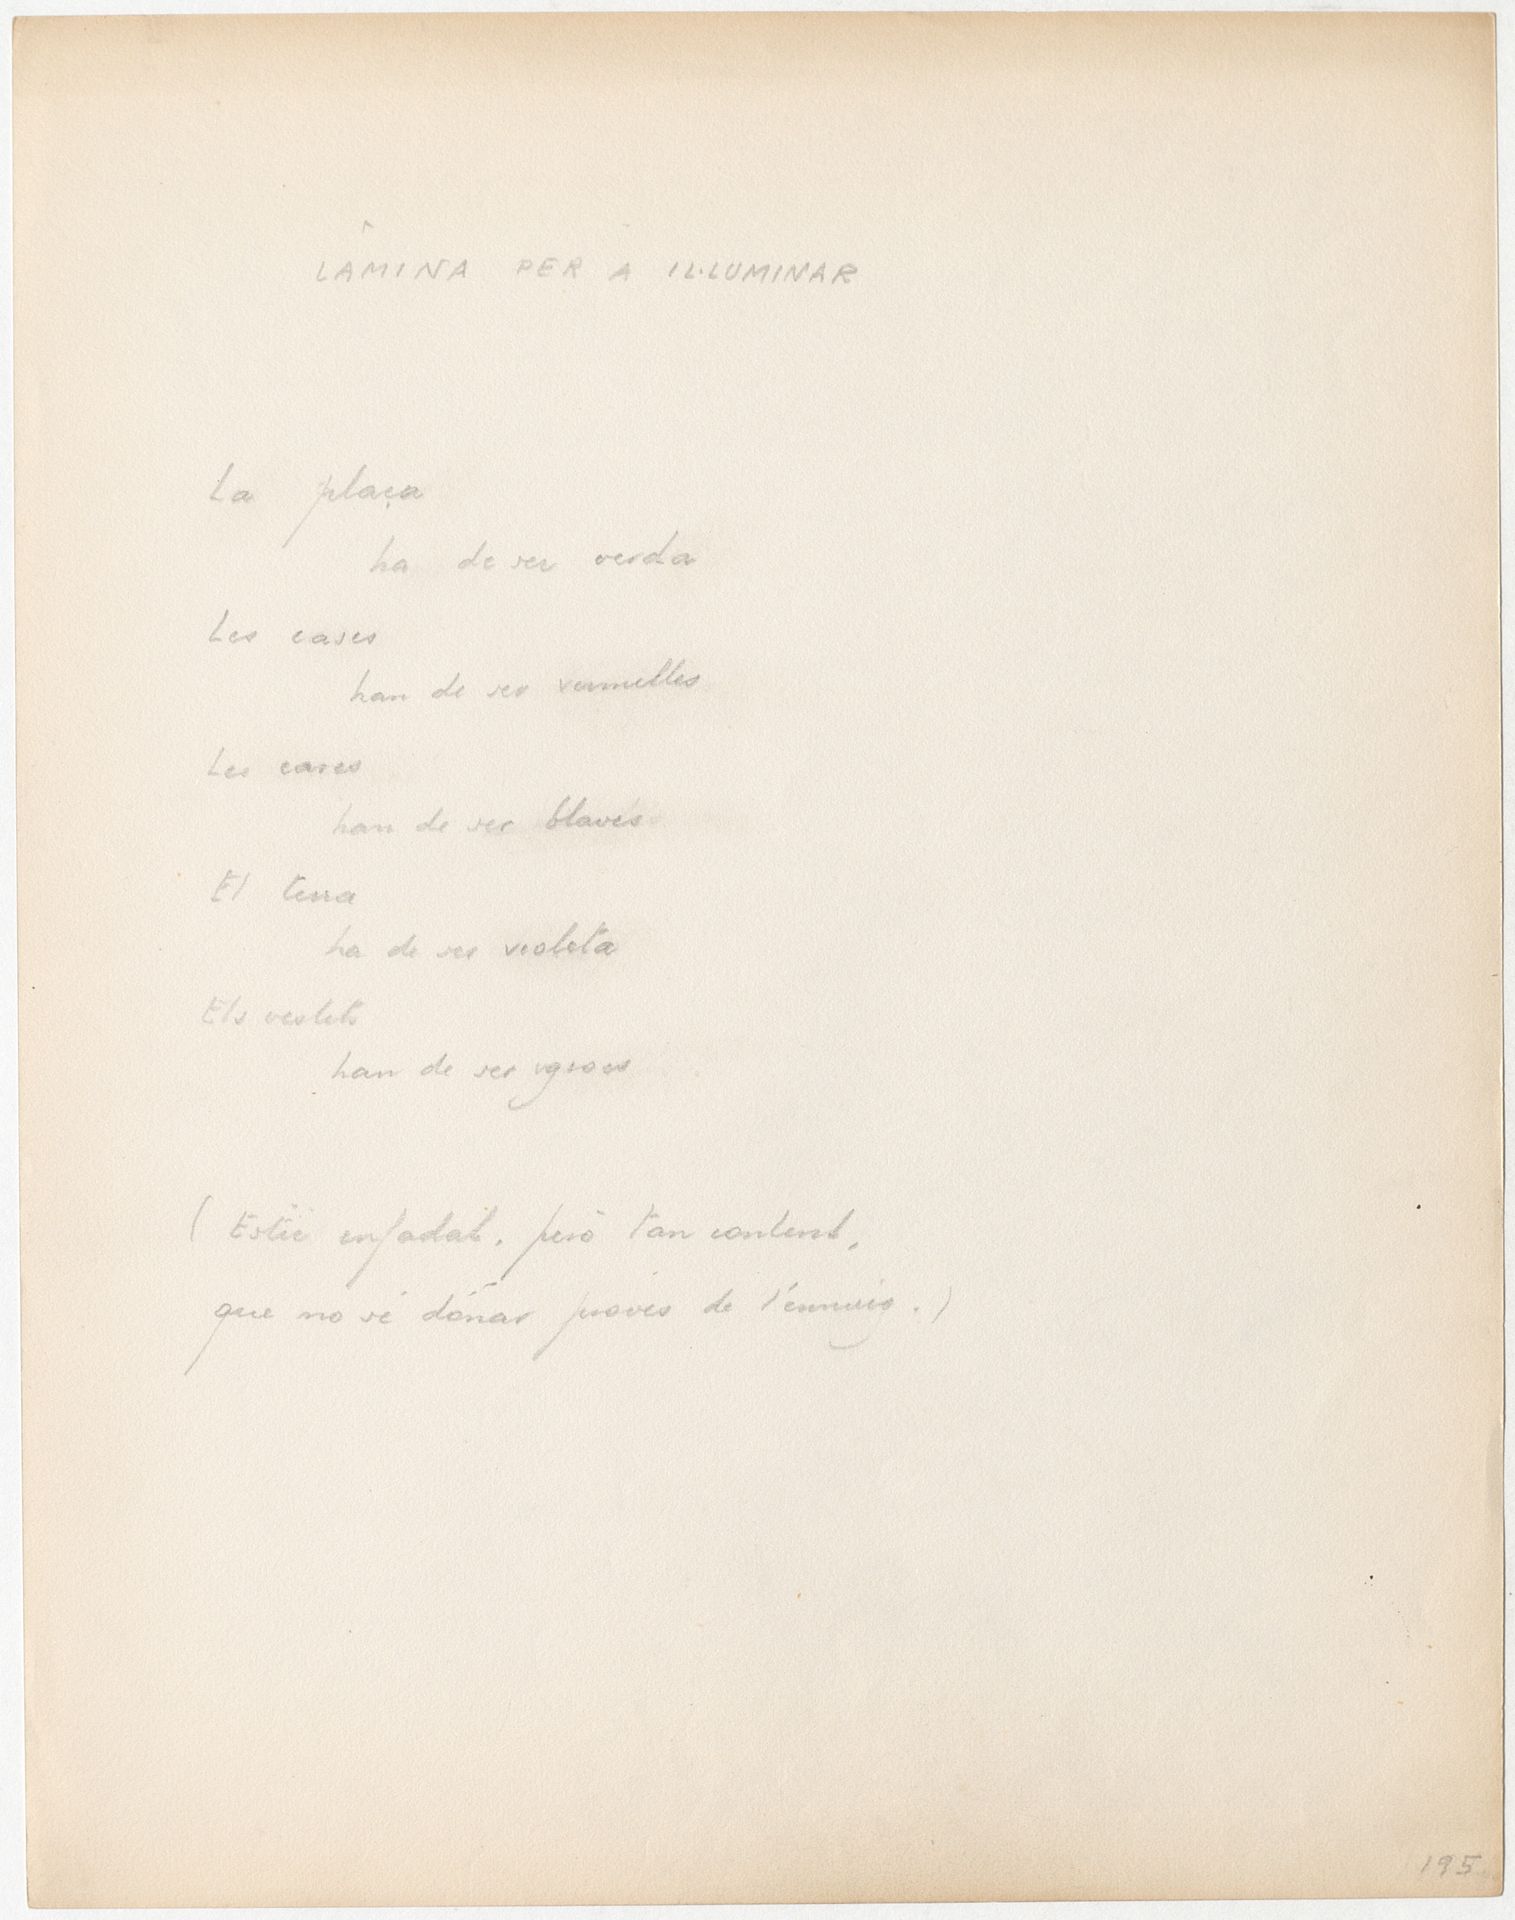 LÀMINA PER A IL·LUMINAR
La plaça
ha de ser verda
Les cases
han de ser vermelles
Les cares
han de ser blaves
El terra
ha de ser violeta
Els vestits
han de ser
(Estic enfadat, però tan content,
que no sé dónar proves de l'ennuig.)
195